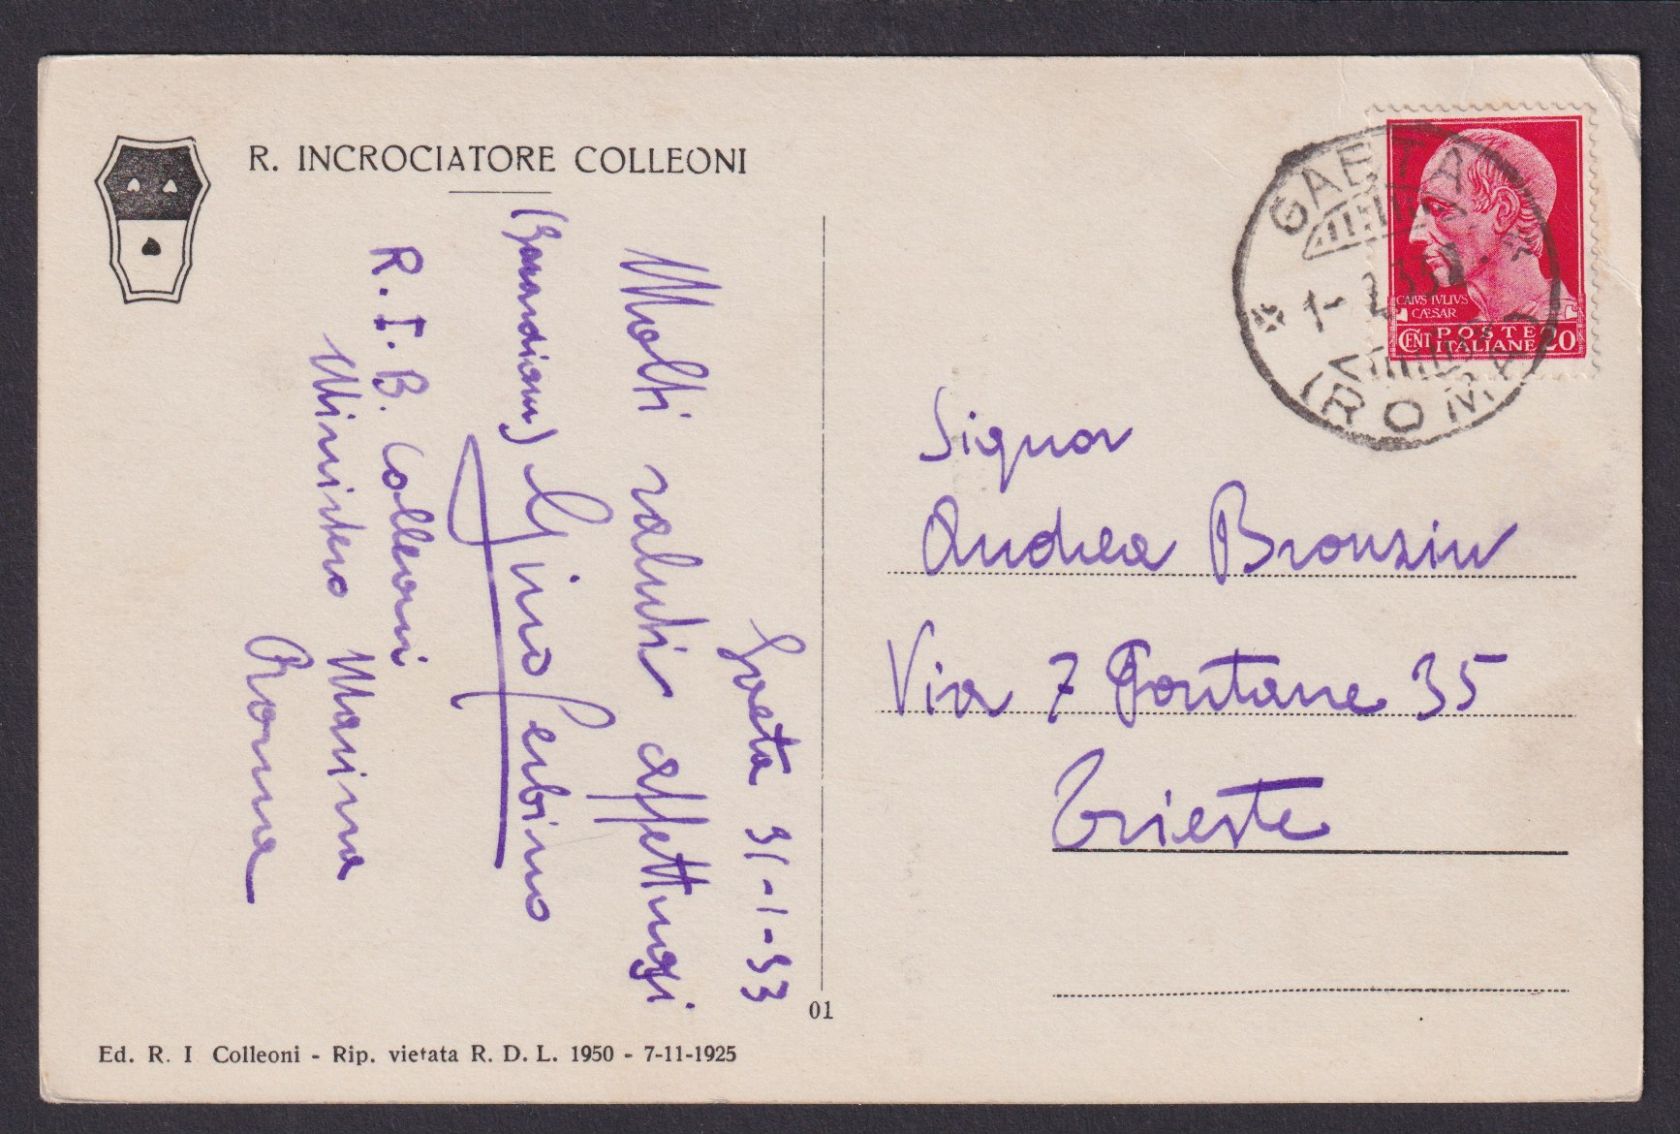 R. INCROCIATORE COLLEONI
Gaeta 31-1-33
Molti saluti affettuosi
(Guardiam) Gino Cerbino
R.I.B. Colleoni
Ministero Marina
Roma
Ed. R. I Colleoni - Rip. vietata R. D. L. 1950 - 7-11-1925
01
GAETA
1-2.33
(ROMA)
CAIVS IVLIVS
CÆSAR
CENT POSTE 20
ITALIANE
Signor
Andrea Bronzin
Via 7 Fontane 35
Trieste